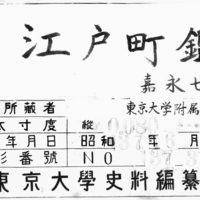 江戸町鑑
嘉永七
所蔵者
東京大学附属
寸度
縦
年月日
昭和
年
月
番號
NO
東京大學史料編纂